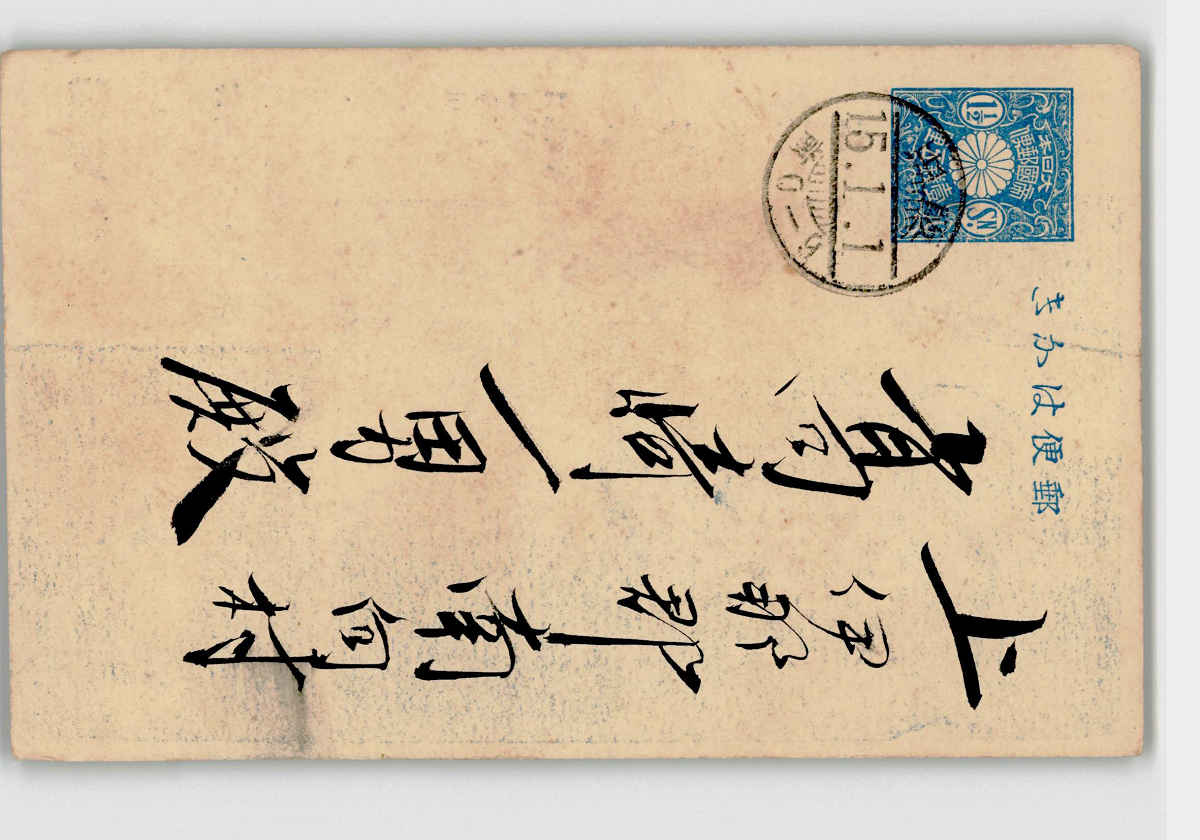 郵便はかき
大日本帝國郵便
1½ Sn.
15.1.1
上伊那郡南向村
一男殿